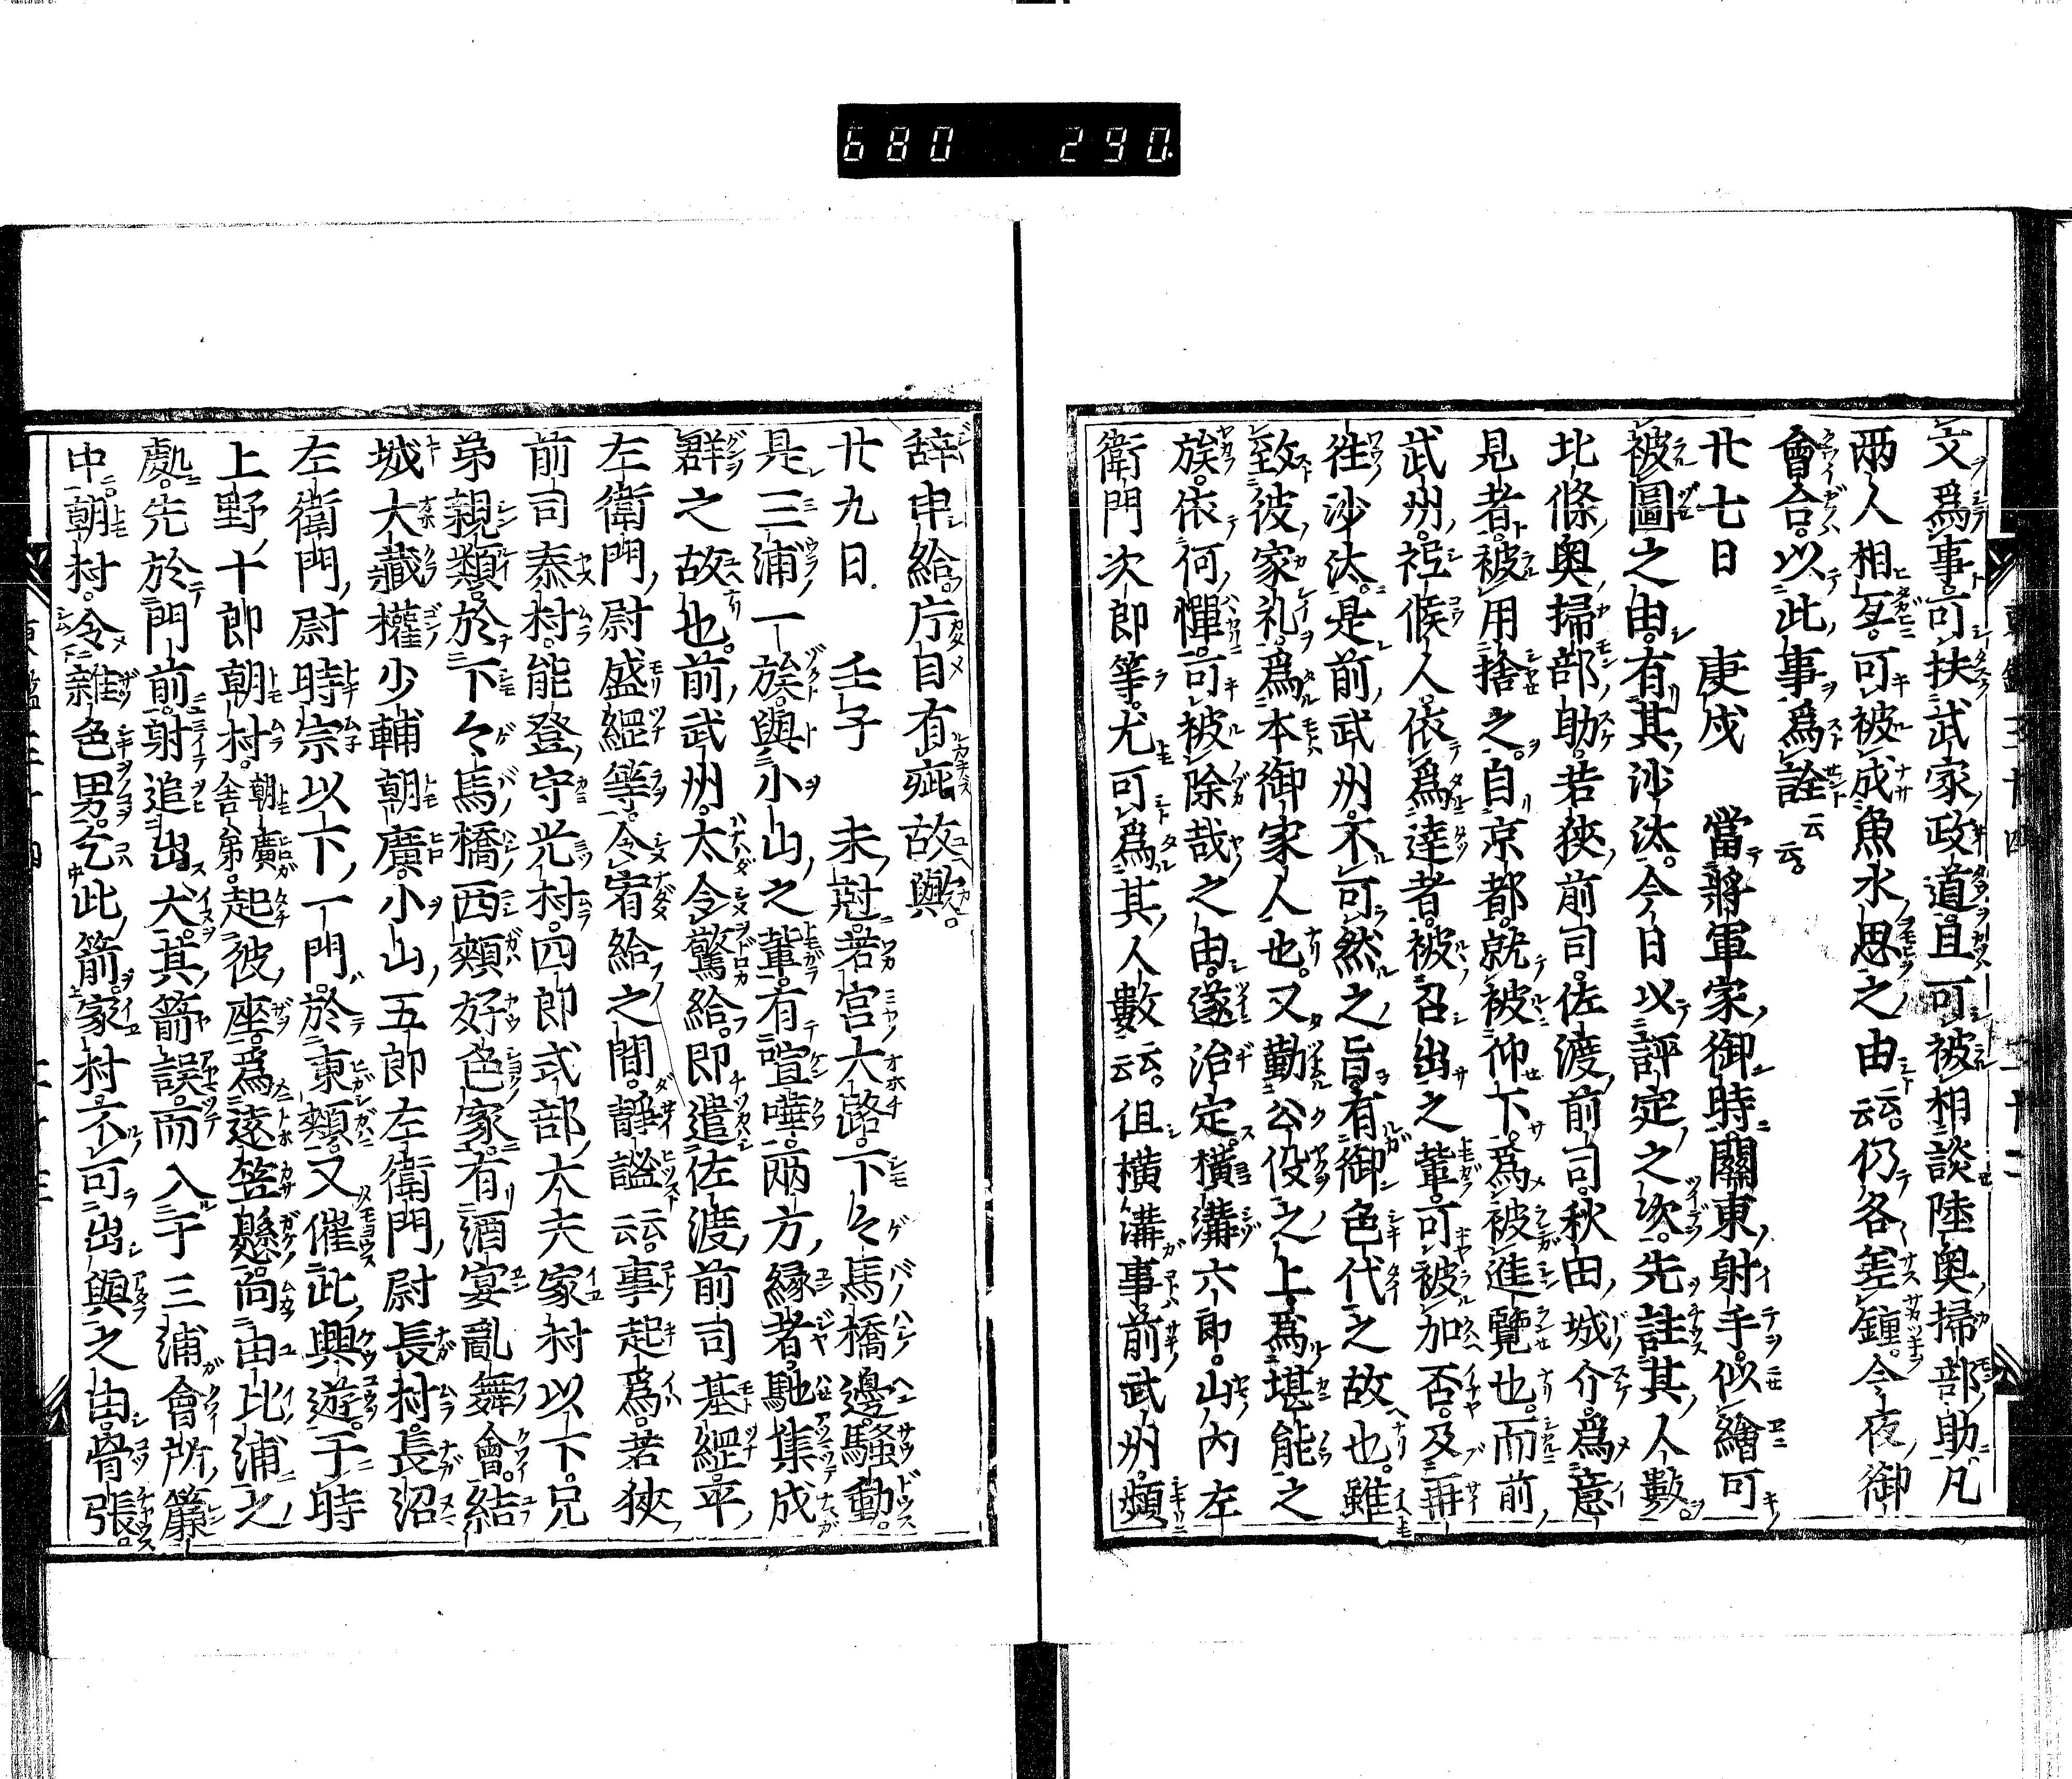 680 290
文爲事可扶武家政道且可被相談陸奥掃部助凡
兩人相互可被成魚水思之由云云仍各差鍾今夜御
會合以此事爲詮云云
廿七日 庚戌 當將軍家御時關東射手似繪可
被圖之由有其沙汰今日以評定之次先註其人數
北條奥掃部助若狹前司佐渡前司秋田城介爲意
見者被用捨之自京都就被仰下爲被進覽也而前
武州祗候人依爲達者被召出之輩可被加否及再
往沙汰是前武州不可然之旨有御色代之故也雖
致彼家礼爲本御家人也又勤公役之上爲堪能之
族依何憚可被除哉之由遂治定横溝六郎山内左
衛門次郎等尤可爲其人數云云但横溝事前武州頻
辞申給庁目有疵故與
廿九日 壬子 未尅若宮大路下々馬橋邊騷動
是三浦一族與小山之輩有喧嘩兩方縁者馳集成
群之故也前武州太令驚給即遣佐渡前司基綱平
左衛門尉盛綱等令宥給之間靜謐云云事起爲若狹
前司泰村能登守光村四郎式部大夫家村以下兄
弟親類於下々馬橋西頬好色家有酒宴亂舞會結
城大藏權少輔朝廣小山五郎左衛門尉長村長沼
左衛門尉時宗以下一門於東頬又催此興遊于時
上野十郎朝村朝廣舎弟起彼座爲遠笠懸向由比浦之
處先於門前射追出犬其箭誤而入于三浦會所簾
中朝村令雜色男乞此箭家村不可出與之由骨張